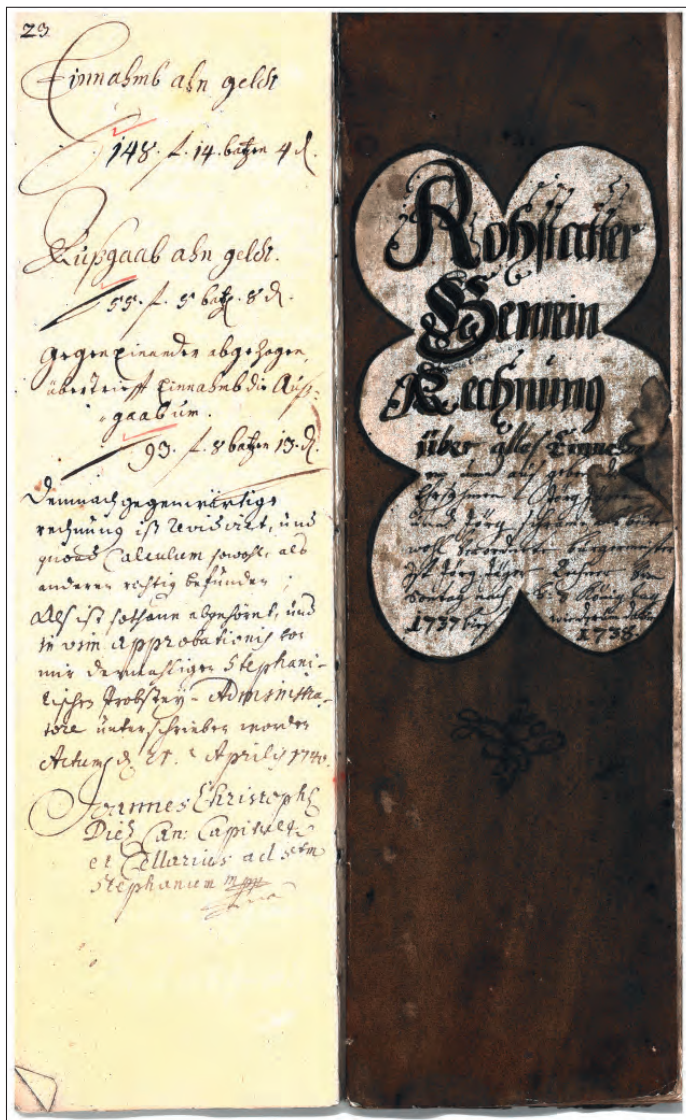 23
Einnahmb ahn geldt
148. f. 14. batzen 4 d.
Außgaab ahn geldt.
55. f. 5 batz. 8 d.
gegen Einander abgezogen,
übertrifft Einnahmb die Auß-
gaab um.
93. f. 8 batzen 13. d.
Demnach gegenwärtige
rechnung ist revidirt, und
quoad Calculum sowohl, als
anderen richtig befunden;
Als ist sothane abgehört, und
in vim approbationis von
mir dermahligen Stephani-
tischen Probstey-Administra-
tore unterschrieben worden
Actum d. 21. Aprilis 1740.
Joannes Christoph
Diel Can: Capitul:
et Cellarius ad Stm
Stephanum mpp
Rohstatter
Gemein
Rechnung
über alles Einneh
und auß geben
Jörg
Jörg
wohl burgermeister
ist Jörg
Sontag nach König tag
1737 biß
1738